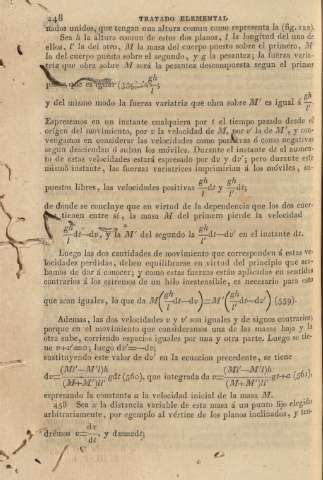 248 TRATADO ELEMENTAL
nados unidos, que tengan una altura comun como representa la (fig.122).
Sea h la altura comun de estos dos planos, l la longitud del uno de
ellos, l' la del otro, M la masa del cuerpo puesto sobre el primero, M'
la del cuerpo puesto sobre el segundo, y g la pesantez; la fuerza varia-
triz que obra sobre M será la pesantez descompuesta segun el primer
que es igual gh/l
y del mismo modo la fuerza variatriz que obra sobre M' es igual á gh/l'.
Espresemos en un instante cualquiera por t el tiempo pasado desde el
orígen del movimiento, por v la velocidad de M, por v' la de M', y con-
vengamos en considerar las velocidades como positivas ó como negativas
segun desciendan ó suban los móviles. Durante el instante dt el aumen-
to de estas velocidades estará espresado por dv y dv'; pero durante este
mismo instante, las fuerzas variatrices imprimirian á los móviles, su-
puestos libres, las velocidades positivas gh/l dt y gh/l' dt;
de donde se concluye que en virtud de la dependencia que los dos cuer-
tienen entre sí, la masa M del primero pierde la velocidad
gh/l dt—dv, y la M' del segundo la gh/l' dt—dv' en el instante dt.
Luego las dos cantidades de movimiento que corresponden á estas ve-
locidades perdidas, deben equilibrarse en virtud del principio que aca-
bamos de dar á conocer; y como estas fuerzas están aplicadas en sentidos
contrarios á los estremos de un hilo inestensible, es necesario para esto
que sean iguales, lo que da M(gh/l dt—dv)=M'(gh/l' dt—dv') (559).
Ademas, las dos velocidades v y v' son iguales y de signos contrarios;
porque en el movimiento que consideramos una de las masas baja y la
otra sube, corriendo espacios iguales por una y otra parte. Luego se tie-
ne v+v'=0; luego dv'=—dv;
sustituyendo este valor de dv' en la ecuacion precedente, se tiene
dv=(Ml'—M'l)h/(M+M')ll' gdt (560), que integrada da v=(Ml'—M'l)h/(M+M')ll' gt+a (561),
espresando la constante a la velocidad inicial de la masa M.
258 Sea x la distancia variable de esta masa á un punto fijo elegido
arbitrariamente, por ejemplo al vértice de los planos inclinados, y ten-
drémos v=dx/dt, y dx=vdt;